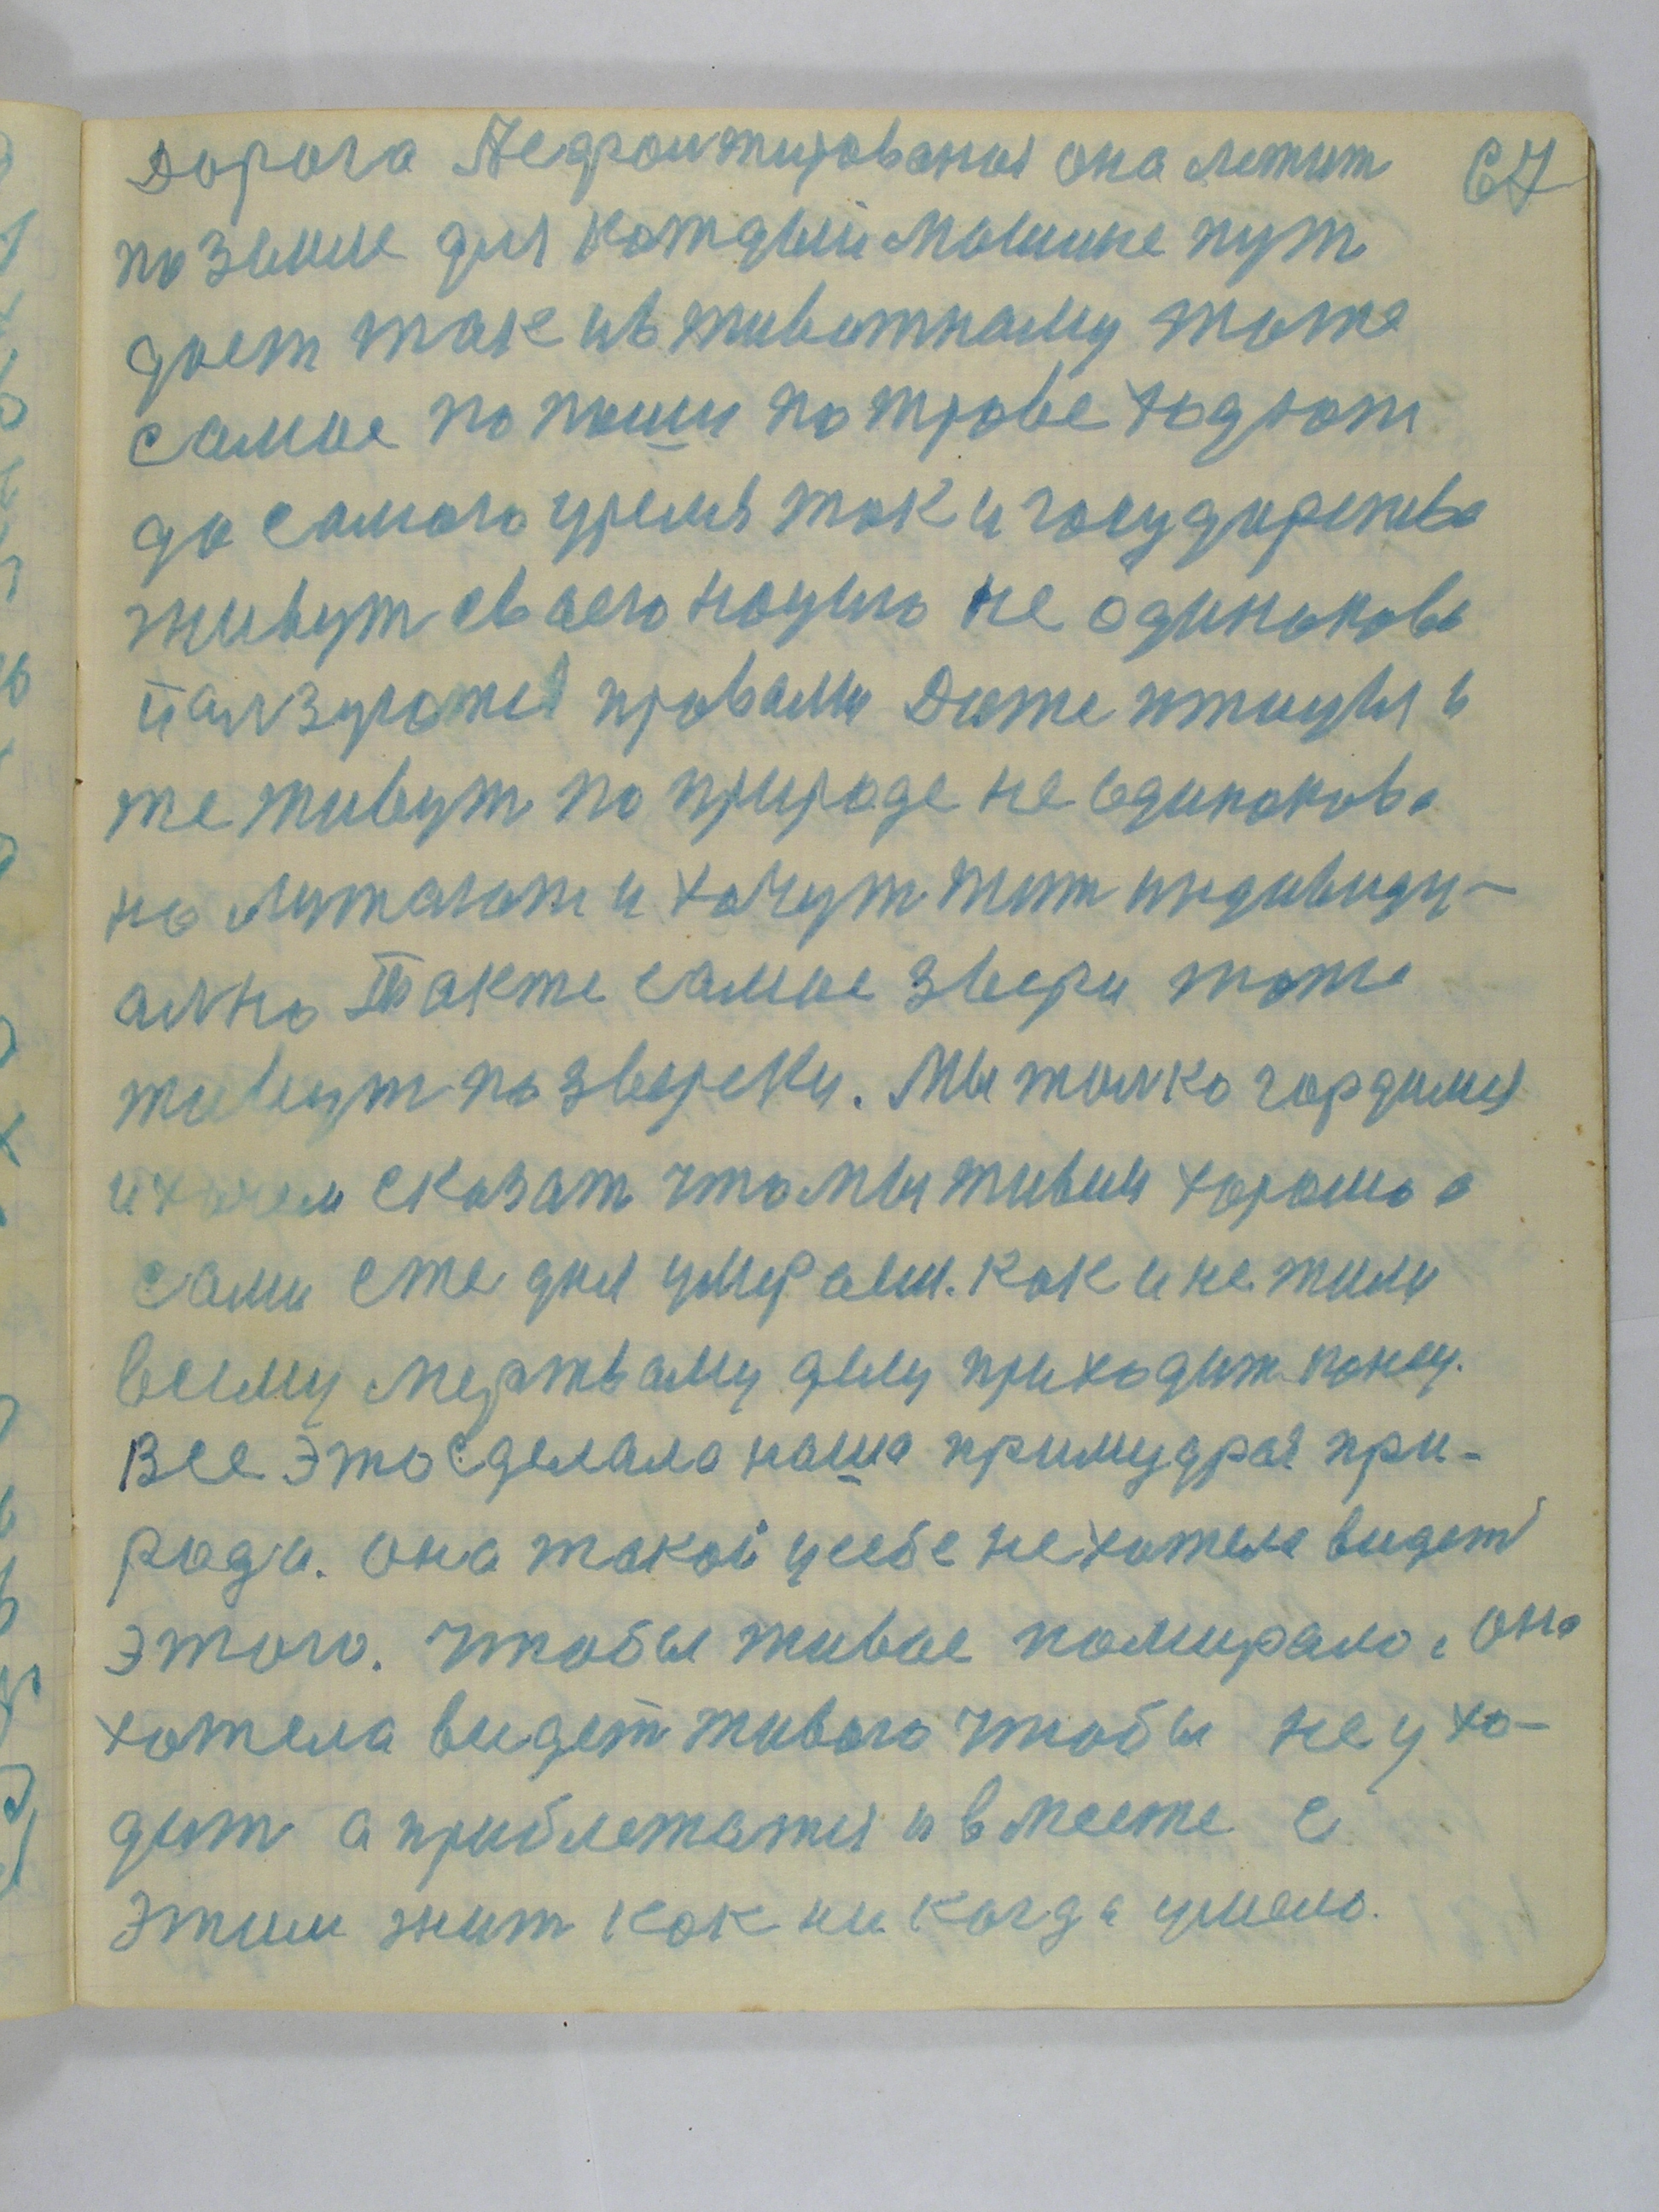 Дорога Педроитированоя она лежит 67
по земле для каждый машине пут
дает так ив животнаму тоже
самое по паши по траве ходют
до самого время так и государства
живут своего нацыю не одинаково
ползуютя правами Даже птицы и
же живут по природе не одинаково
но литают и хочут жит индивиду-
ално Также самое звери тоже
живут по зверски. Мы толко гордимя
и хочем сказат что мы живем хорошо а
сами еже дня умераем. как и не жили
всему мертваму делу приходит конец.
Все это сделала наша примудрая при-
рада. она такой у себе не хотела видет
этого. Чтобы живое помирало, она
хотела видет живого чтобы не ухо-
дит а приблежатя и вместе с
этим жит как ни когда умело.